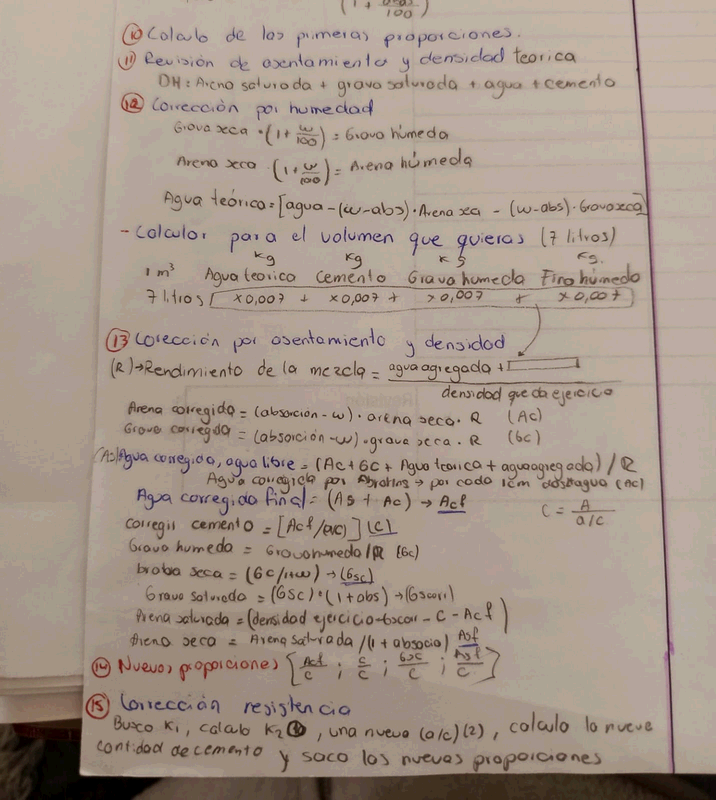 (1 + 100)
⑩ Calculo de las primeras proporciones.
⑪ Revisión de asentamiento y densidad teorica
DH: Arena saturada + grava saturada + agua + cemento
⑫ Corrección por humedad
Grava seca · (1 + w/100) = Grava húmeda
Arena seca · (1 + w/100) = Arena húmeda
Agua teórico = [agua - (w-abs) · Arena seca - (w-abs) · Grava seca]
- Calcular para el volumen que quieras (7 litros)
Kg Kg Kg Kg.
1 m³ Agua teorico Cemento Grava humeda Fino húmedo
7 litros x0,007 + x0,007 + x0,007 + x0,007
⑬ Corección por asentamiento y densidad
(R) → Rendimiento de la mezcla = agua agregada +
densidad que da ejercicio
Arena corregida = (absorcion - w) · arena seca · R (Ac)
Grava corregida = (absorción - w) · grava seca · R (Gc)
Agua corregida, agua libre = (Ac + Gc + Agua teorica + agua agregada) / R
Agua corregida por Abrahms → por cada 1cm agua (Ac)
Agua corregida final = (As + Ac) → Acf C = A / a/c
corregir cemento = [Acf/a/c)] (C)
Grava humeda = Grava humeda/R (Gc)
seca = (Gc/1+w) → (Gsc)
Grava saturada = (Gsc) · (1 + abs) →
Arena saturada = (densidad ejercicio - - C - Acf)
Arena seca = Arena saturada / (1 + ) Asf
⑭ Nuevas proporciones [Acf/C ; C/C ; Gsc/C ; Asf/C]
⑮ Corrección resistencia
Busco K1, calculo K2, una nueva (a/c)(2), calculo la nueva
cantidad de cemento y saco las nuevas proporciones